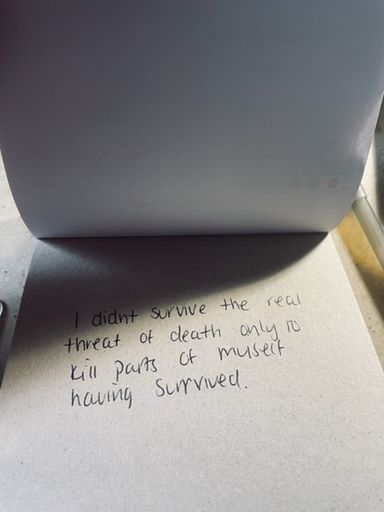 I didnt survive the real
threat of death only to
kill parts of myself
having survived.